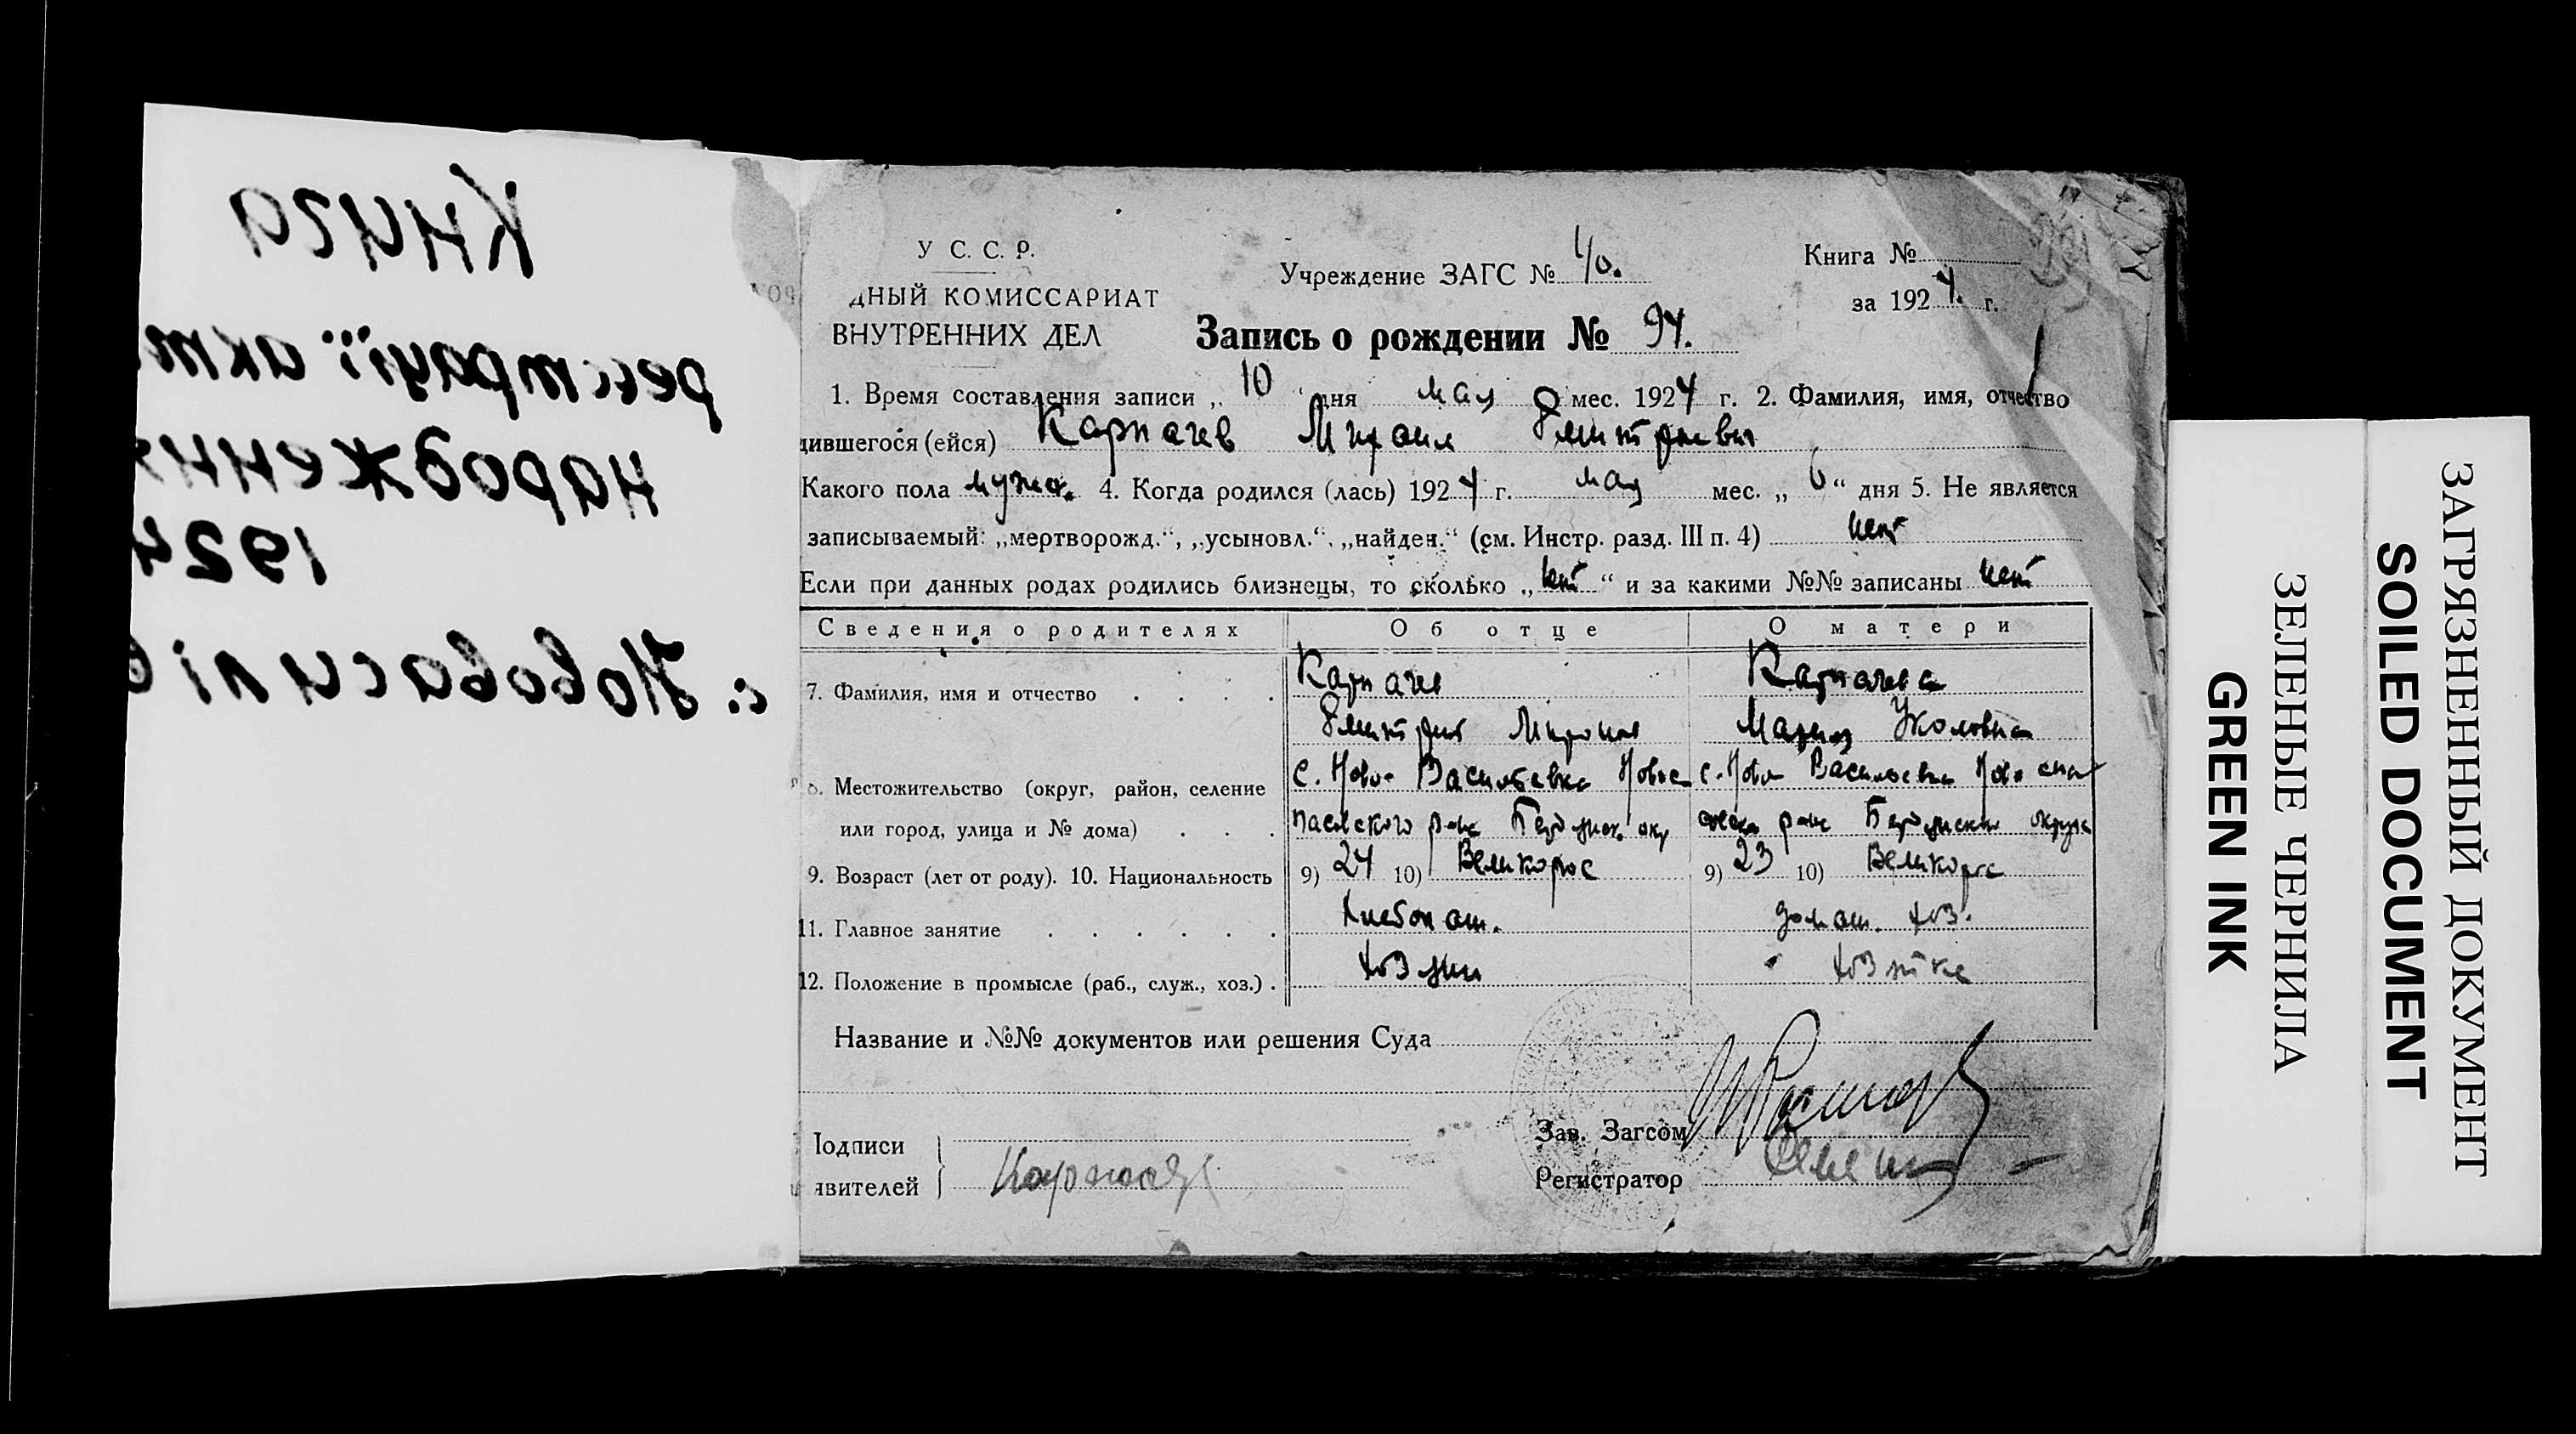 Книга
реєстрації акт
народження
1924
с. Нововасилів
У С. С. Р.
ДНЫЙ КОМИССАРИАТ
ВНУТРЕННИХ ДЕЛ
Учреждение ЗАГС №
Книга №
за 1924 г.
Запись о рождении № 94.
1. Время составления записи „ 10 “ дня мая мес. 1924 г. 2. Фамилия, имя, отчество
дившегося (ейся) Карпачев Михаил Дмитриевич
Какого пола мужск. 4. Когда родился (лась) 1924 г. мая мес. „ 6 “ дня 5. Не является
записываемый: „мертворожд.“, „усыновл.“, „найден.“ (см. Инстр. разд. III п. 4) нет
Если при данных родах родились близнецы, то сколько „ нет “ и за какими №№ записаны нет
Сведения о родителях Об отце О матери
7. Фамилия, имя и отчество . . . . Карпачев Карпачева
Дмитрий Мария
8. Местожительство (округ, район, селение с. Ново-Васильевка Новос с. Ново Васильевка Ново спас
или город, улица и № дома) . . . пасского рай Бердянск. окр района Бердянского округа
9. Возраст (лет от роду). 10. Национальность 9) 24 10) Великорос 9) 23 10) Великорос
11. Главное занятие . . . . . . Хлебопаш. домаш. хоз.
12. Положение в промысле (раб., служ., хоз.) . хозяин хозяйка
Название и №№ документов или решения Суда
Подписи
явителей
Зав. Загсом
Регистратор
ЗЕЛЕНЫЕ ЧЕРНИЛА
GREEN INK
ЗАГРЯЗНЕННЫЙ ДОКУМЕНТ
SOILED DOCUMENT